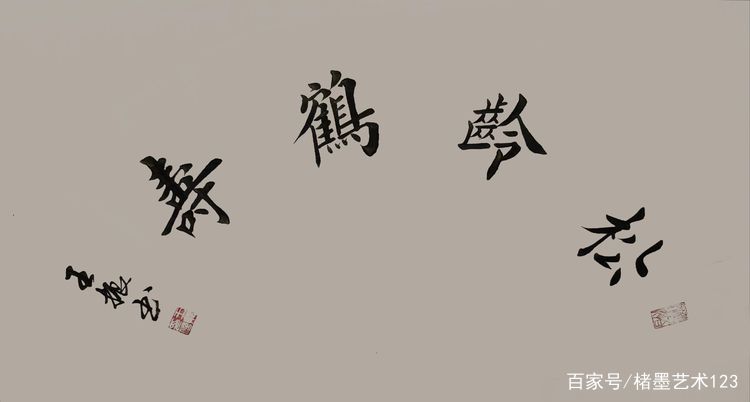 松齡鶴壽
王 书
百家号/楮墨艺术123